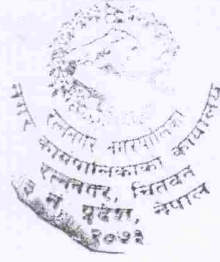 रत्ननगर नगरपालिका
नगर कार्यपालिकाको कार्यालय
रत्ननगर, चितवन
नेपाल
२०७३